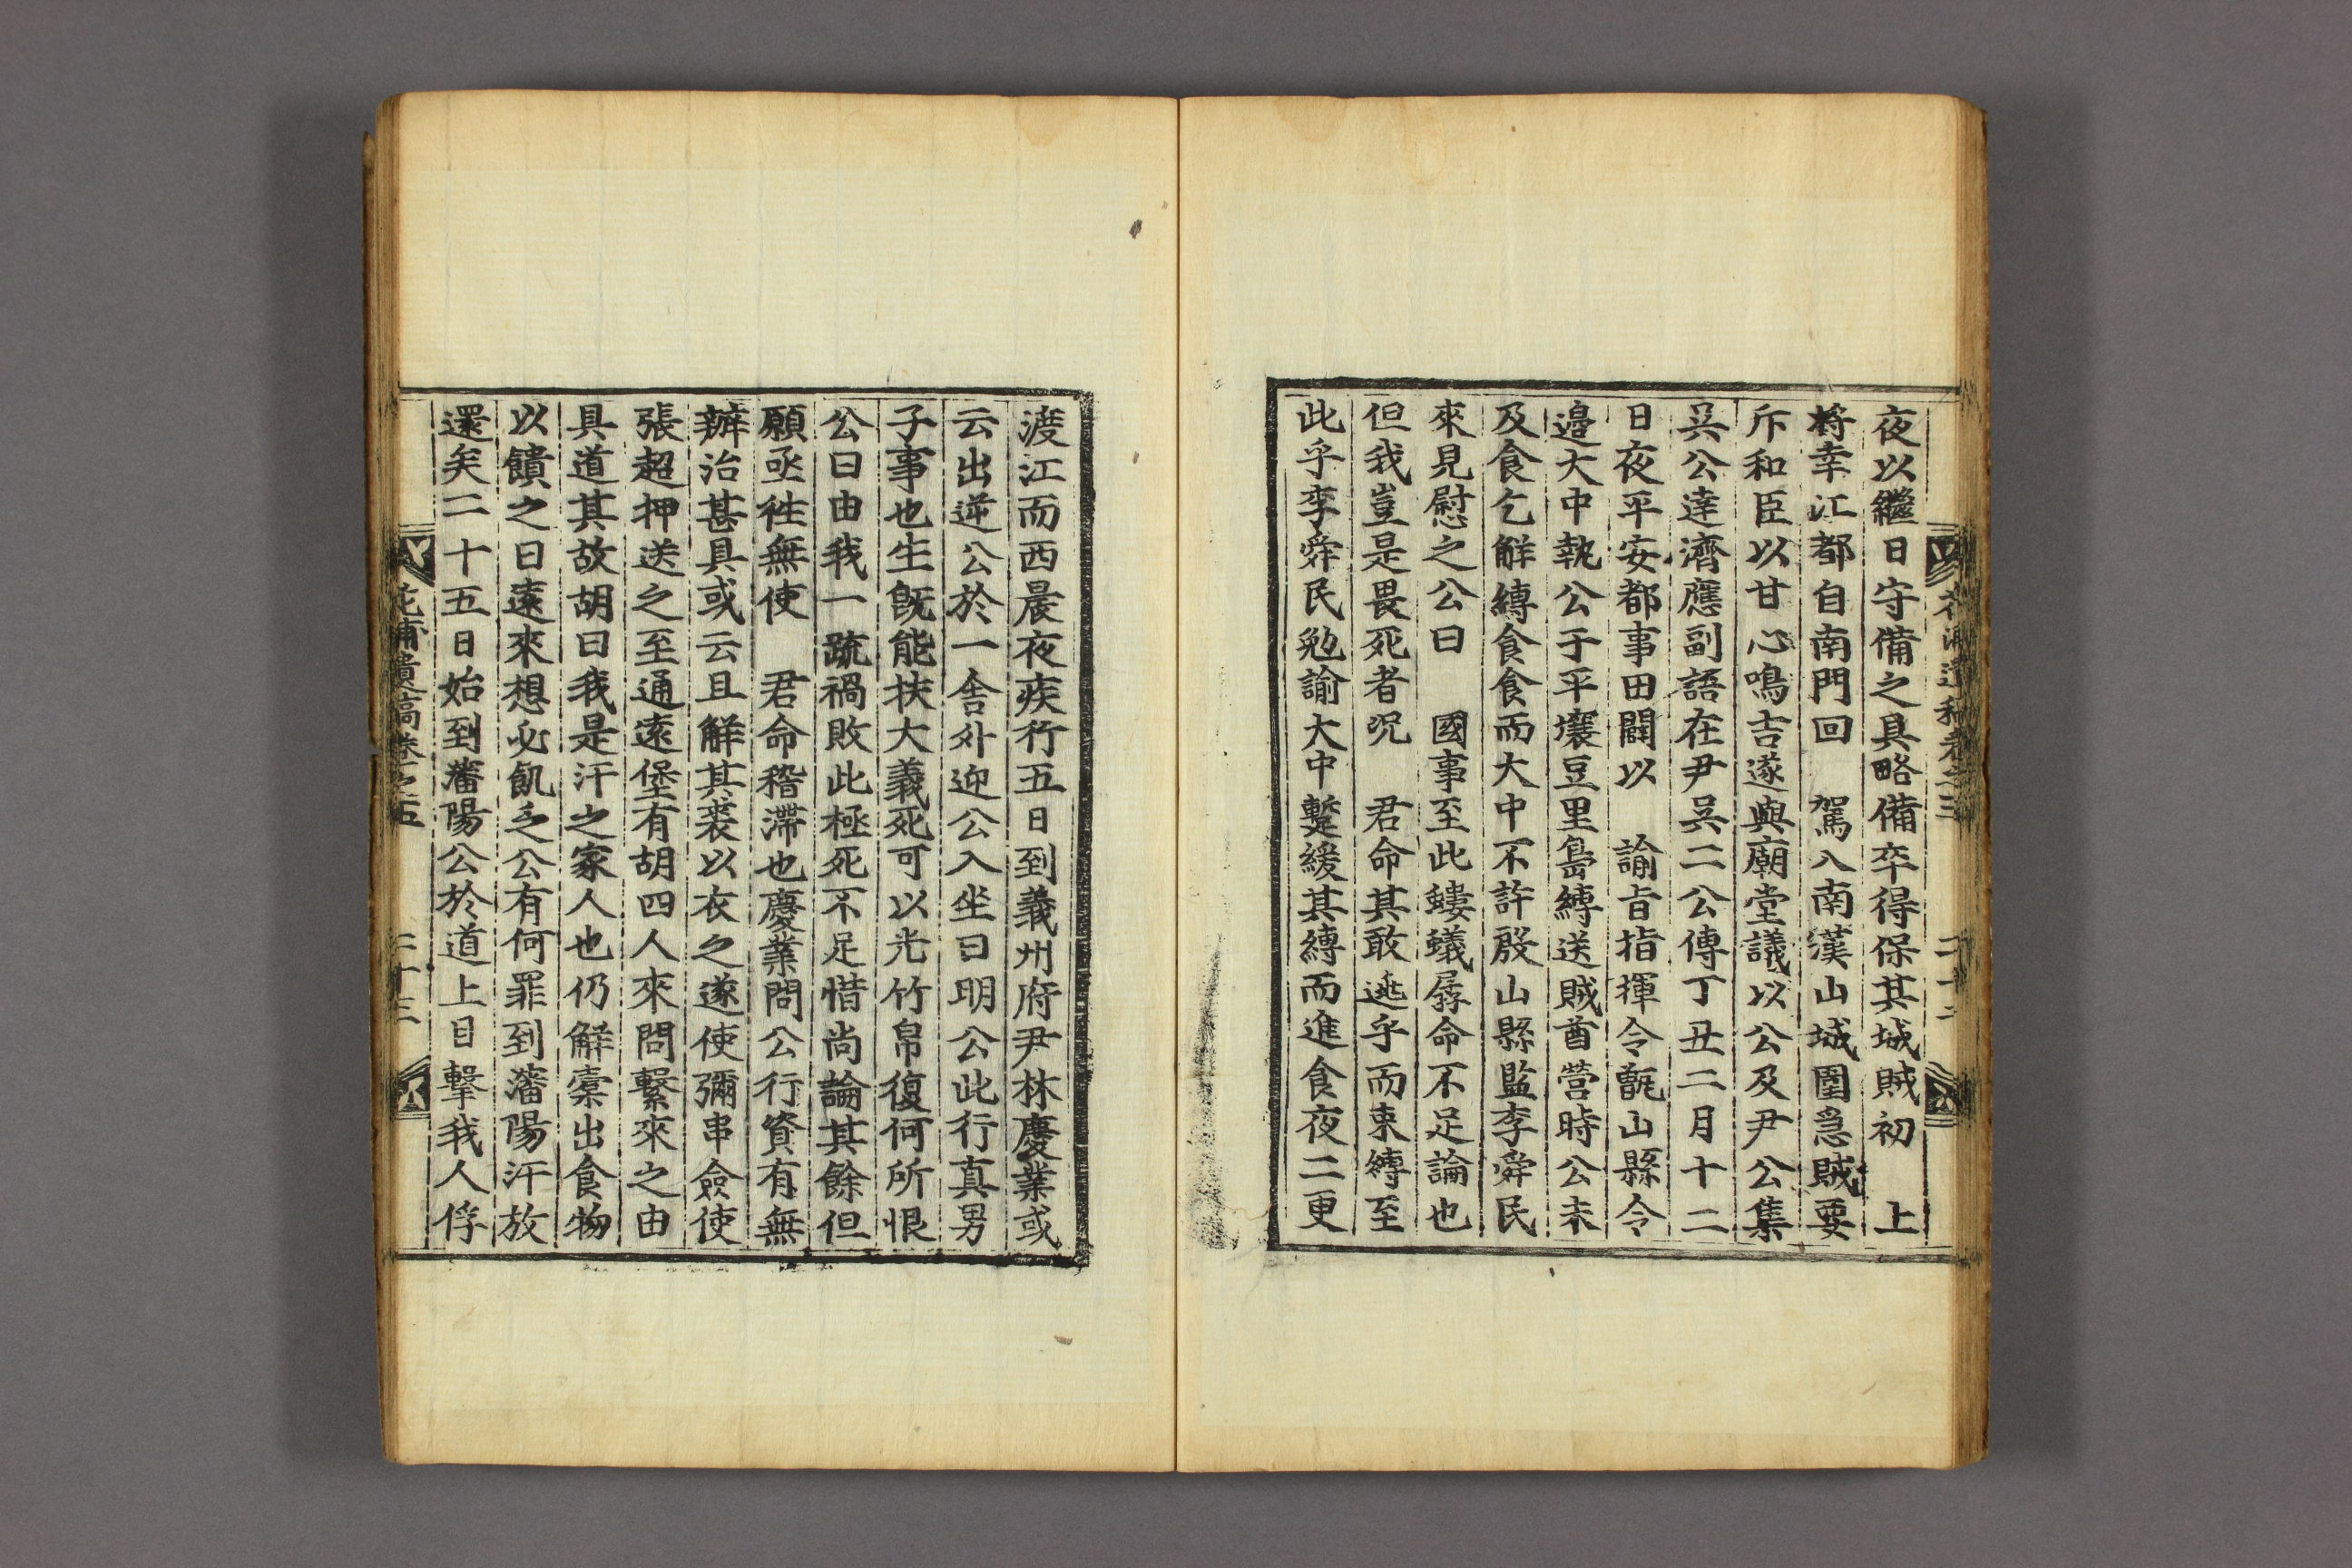 夜以繼日守備之具略備卒得保其城賊初　上
將幸江都自南門回　駕入南漢山城圍急賊要
斥和臣以甘心鳴吉遂與廟堂議以公及尹公集
吳公達濟應副語在尹吳二公傳丁丑二月十二
日夜平安都事田闢以　諭旨指揮令甑山縣令
邉大中執公于平壤豆里島縛送賊酋營時公未
及食乞解縛食食而大中不許殷山縣監李舜民
來見慰之公曰　國事至此螻蟻孱命不足論也
但我豈是畏死者况　君命其敢逃乎而束縛至
此乎李舜民勉諭大中蹔緩其縛而進食夜二更
渡江而西晨夜疾行五日到義州府尹林慶業或
云出逆公於一舍外迎公入坐曰明公此行真男
子事也生旣能扶大義死可以光竹帛復何所恨
公曰由我一疏禍敗此極死不足惜尚論其餘但
願亟徃無使　君命稽滯也慶業問公行資有無
辦治甚具或云且解其裘以衣之遂使彌串僉使
張超押送之至通遠堡有胡四人來問繫來之由
具道其故胡曰我是汗之家人也仍解橐出食物
以饋之曰遠來想必飢乏公有何罪到瀋陽汗放
還矣二十五日始到瀋陽公於道上目擊我人俘
花浦遺稿卷之五　二十三